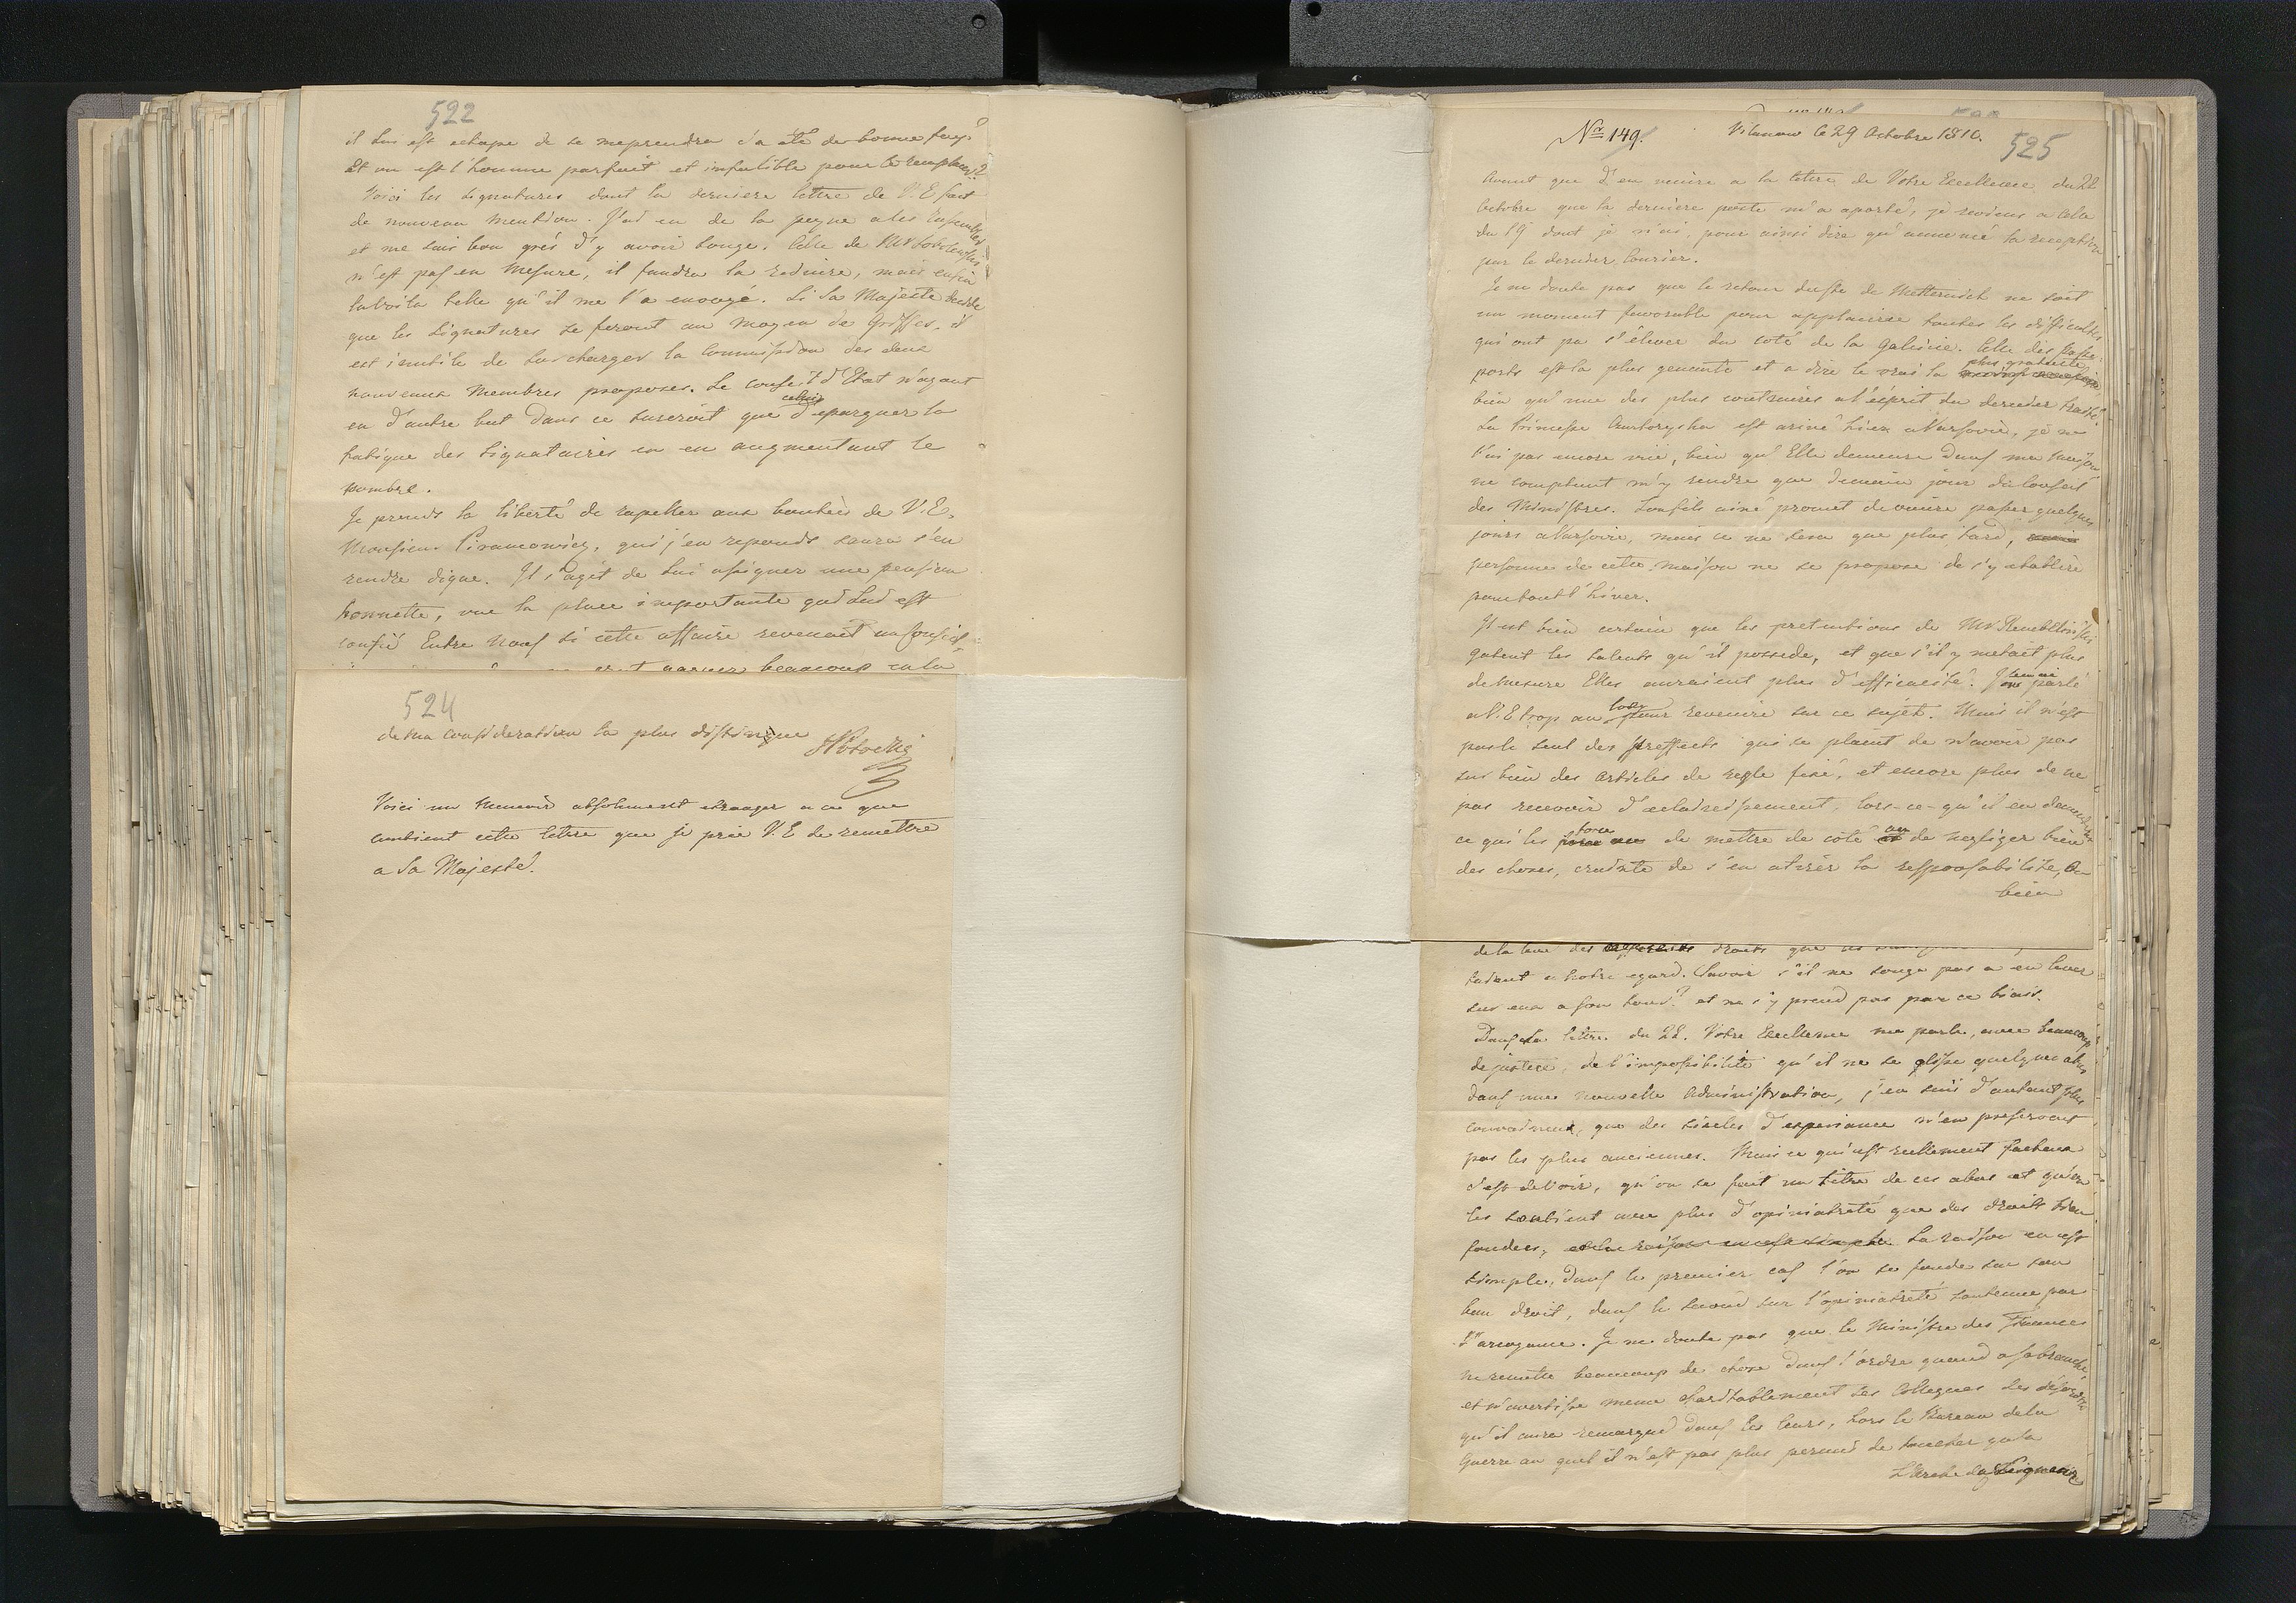 522
il lui est echapé de se meprendre ç'a été de bonne foy?
Et ou est l'homme parfait et infalible pour le remplacer?
Voici les signatures dont la derniere lettre de V. E fait
de nouveau mention. J'ai eu de la peyne a les rasembler
et me suis bon grés d'y avoir songe. Celle de Mr
n'est pas en mesure, il faudra la reduire, mais enfin
la voila telle qu'il me l'a envoyé. Si Sa Majesté decide
que les signatures se feront au moyen de Griffes, il
est inutile de surcharger la Commission des deux
nouveaux Membres proposes. Le conseil d'Etat n'ayant
eu d'autre but dans ce surcroit que celui d'epargner la
fatigue des signataires en en augmentant le
nombre.
Je prends la liberté de rapeller aux bontées de V. E.
Monsieur Piramowicz, qui j'en reponds saura s'en
rendre digne. Il s'agit de lui asigner une pension
honnette, vue la place importante qui lui est
confié Entre nous si cette affaire revenait au conseil
beaucoup en la
524
de ma consideration la plus distingue
SPotocki
Voici un memoir absolument etranger a ce que
contient cette lettre que je prie V. E de remettre
a Sa Majesté.
Nr 149.
Vilanow le 29 Octobre 1810.
525
Avant que d'en venire a la lettre de Votre Excellence du 22
Octobre que la derniere poste m'a aporté, je reviens a celle
du 19 dont je n'ai, pour ainsi dire qu'annoncé la reception
par le dernier Courier.
Je ne doute pas que le retour du Cte de Metternich ne soit
un moment favorable pour applanire toutes les difficultés
qui ont pu s'élever du coté de la Galicie. Celle des Passe-
ports est la plus genante et a dire le vrai la plus gratuite
bien qu'une des plus contraires a l'esprit du dernier traité.
La Princesse Czartoryska est arivé hier a Varsovie, je ne
l'ai pas encore vüe, bien qu'Elle demeure dans ma maison
ne comptant m'y rendre que demain jour du Conseil
des Ministres. Son fils ainé promet de venire passer quelques
jours a Varsovie, mais ce ne sera que plus tard,
personne de cette maison ne se propose de s'y etablire
pour tout l'hiver.
Il est bien certain que les pretentions de Mr
gatent les talents qu'il possede, et que s'il y metait plus
de mesure Elles auraient plus d'efficacité. J'en ai parlé
a V. E trop au long pour revenire sur ce sujet. Mais il n'est
pas le seul des Preffects qui se plaint de n'avoir pas
sur bien des articles de regle fixé, et encore plus de ne
pas recevoir d'eclaircissement, lors-ce-qu'il en demande
ce qui les force de mettre de coté ou de negliger bien
des choses, crainte de s'en atirer la responsabilité, Ou
bien
de la leur des droits que
tadent a notre egard. Savoir s'il ne songe pas a en lever
sur eux a son tour? et ne s'y prend pas par ce biais.
Dans sa lettre du 22. Votre Excellence me parle, avec beaucoup
de justice, de l'impossibilité qu'il ne se glisse quelques abus
dans une nouvelle Administration, j'en suis d'autant plus
convaincu, que des siecles d'experience n'en preservent
pas les plus anciennes. Mais ce qu'est reellement facheux
c'est de voir, qu'on se fait un titre de ces abus et qu'on
les soutient avec plus d'opiniatreté que des droits bien
fondees, et la raison en est simple. La raison en est
simple, dans le premier cas l'on se fonde sur son
bon droit, dans le second sur l'opiniatreté soutenue par
l'arrogance. Je ne doute pas que le Ministre des Finances
ne remette beaucoup de chose dans l'ordre quand a sa branche
et n'avertisse meme charitablement ses Collegues des désordres
qu'il aura remarqué dans les leurs, hors le Bureau de la
Guerre au quel il n'est pas plus permis de toucher qu'a
L'Arche du Seigneur